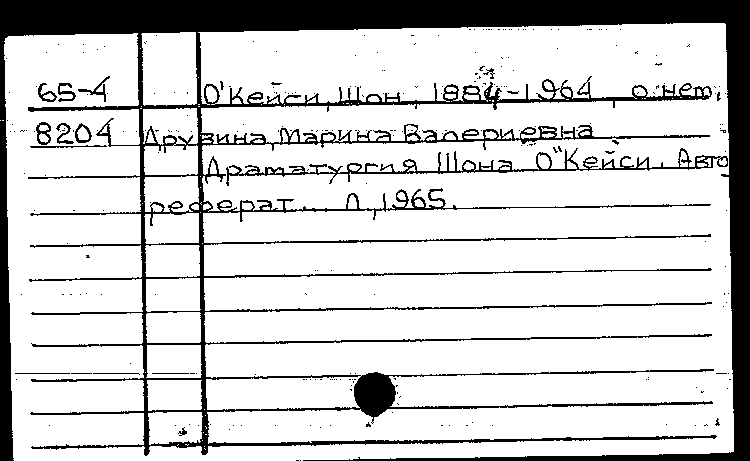 65-4 О'Кейси, Шон, 1884-1964, о нем.
8204 Друзина, Марина Валериевна
Драматургия Шона О"Кейси. Авто
реферат... Л., 1965.